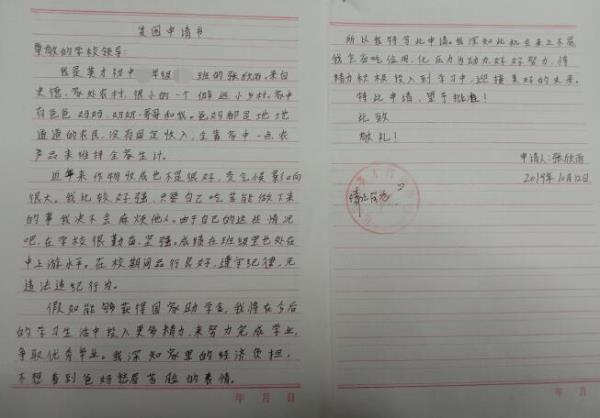 贫困申请书
尊敬的学校领导:
我是英才初中 年级 班的张欣雨。来自
农村。很小的一个偏远小乡村。家中
有爸爸妈妈、奶奶、哥哥和我。爸妈都是地地
道道的农民,没有固定收入,全靠家中一点农
产品来维持全家生计。
近年来作物收成也不是很好,受气候影响
很大。我比较好强,只要自己吃苦能做下来
的事我决不会麻烦他人。由于自己的这些情况
吧,在学校很勤奋,坚强。成绩在班级里也处在
中上游水平。在校期间品行良好,遵守纪律,无
违法违纪行为。
假如能够获得国家助学金,我将在今后
的学习生活中投入更多精力,来努力完成学业,
争取优秀毕业。我深知家里的经济负担,
不想看到爸妈愁眉苦脸的表情。
年 月 日
所以我特写此申请。我深知此机会来之不易
我会 信用,化压力为动力好好努力,将
精力积极投入到学习中,迎接美好的未来。
特此申请,望予批准!
此致
敬礼!
申请人:张欣雨
2019年10月12日
情况属实
年 月 日